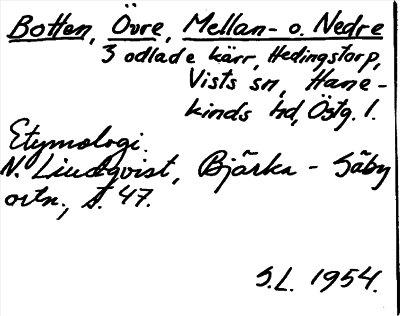 Botten, Övre, Mellan- o. Nedre
3 odlade kärr, Hedingstorp,
Vists sn, Hane-
kinds hd, Östg. l.
Etymologi.
N. Lindqvist, Bjärka - Säby
ortn., s. 47.
S.L. 1954.